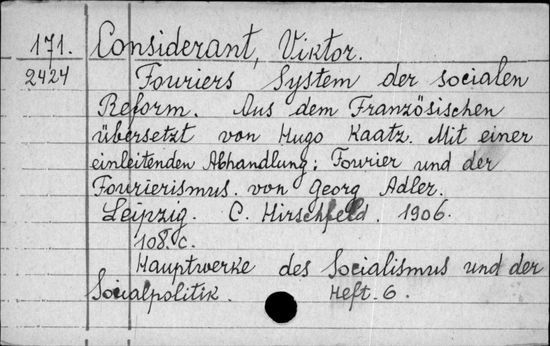 171. Considerant, Viktor.
2424 Fouriers System der socialen
Reform. Aus dem Französischen
übersetzt von Hugo Kaatz. Mit einer
einleitenden Abhandlung: Fourier und der
Fourierismus. von Georg Adler.
Leipzig. C. Hirschfeld. 1906.
108. c.
Hauptwerke des Socialismus und der
Socialpolitik. Heft. 6.